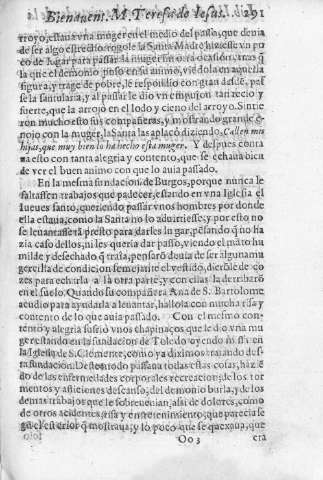 Bienauent. M. Teresa de Iesus. 291
rroyo, estaua vna muger en el medio del passo, que deuia
de ser algo estrecho: rogole la Santa Madre hiziesse vn po
co de lugar para passar: la muger
la que el demonio puso en su animo, viedola en aquella
figura, y trage de pobre, le respondio con gran
le la santularia, y al passar le dio vn empujon tan recio y
fuerte, que la arrojo en el lodo y cieno del arroyo. Sintie
ron mucho esto sus compañeras, y mostrando grande e-
nojo con la muger, la Santa las aplacò diziendo, Callen mis
hijas, que muy bien lo ha hecho esta muger. Y despues conta
ua esto con tanta alegria y contento, que se echaua bien
de ver el buen animo con que lo auia passado.
En la mesma fundacion de Burgos, porque nunca le
faltassen trabajos que padecer, estando en vna Iglesia el
Iueues santo, queriendo passar vnos hombres por donde
ella estaua, como la Santa no lo aduirtiesse, y por esto no
se leuantasse tã presto para darles lugar, pẽsando q̃ no ha
zia caso dellos, ni les queria dar passo, viendo el mãto hu
milde y desechado q̃ traìa, pensarõ deuia de ser alguna mu
gercilla de condicion semejante el vestido, dierõle de co
zes para echarla a la otra parte, y con ellas la derribarõ
en el suelo. Quando su compañera Ana de S. Bartolome
acudio para ayudarla a leuantar, hallola con mucha risa y
contento de lo que auia passado. Con el mesmo con-
tento y alegria sufrio vnos chapinaços que le dio vna mu
ger estando en la fundacion de Toledo oyendo missa en
la Iglesia de S. Clemente, como ya diximos tratando des-
ta fundacion. Deste modo passaua todas estas cosas, haziẽ
do de las enfermedades corporales recreacion; de los tor
mentos y afliciones descanso, del demonio burla, y de los
demas trabajos que le sobreuenian, assi de dolores, como
de otros accidentes, risa y entretenimiento; que parecia se
gũ el exterior q̃ mostraua, y lo poco que se quexaua, que
Oo 3 era